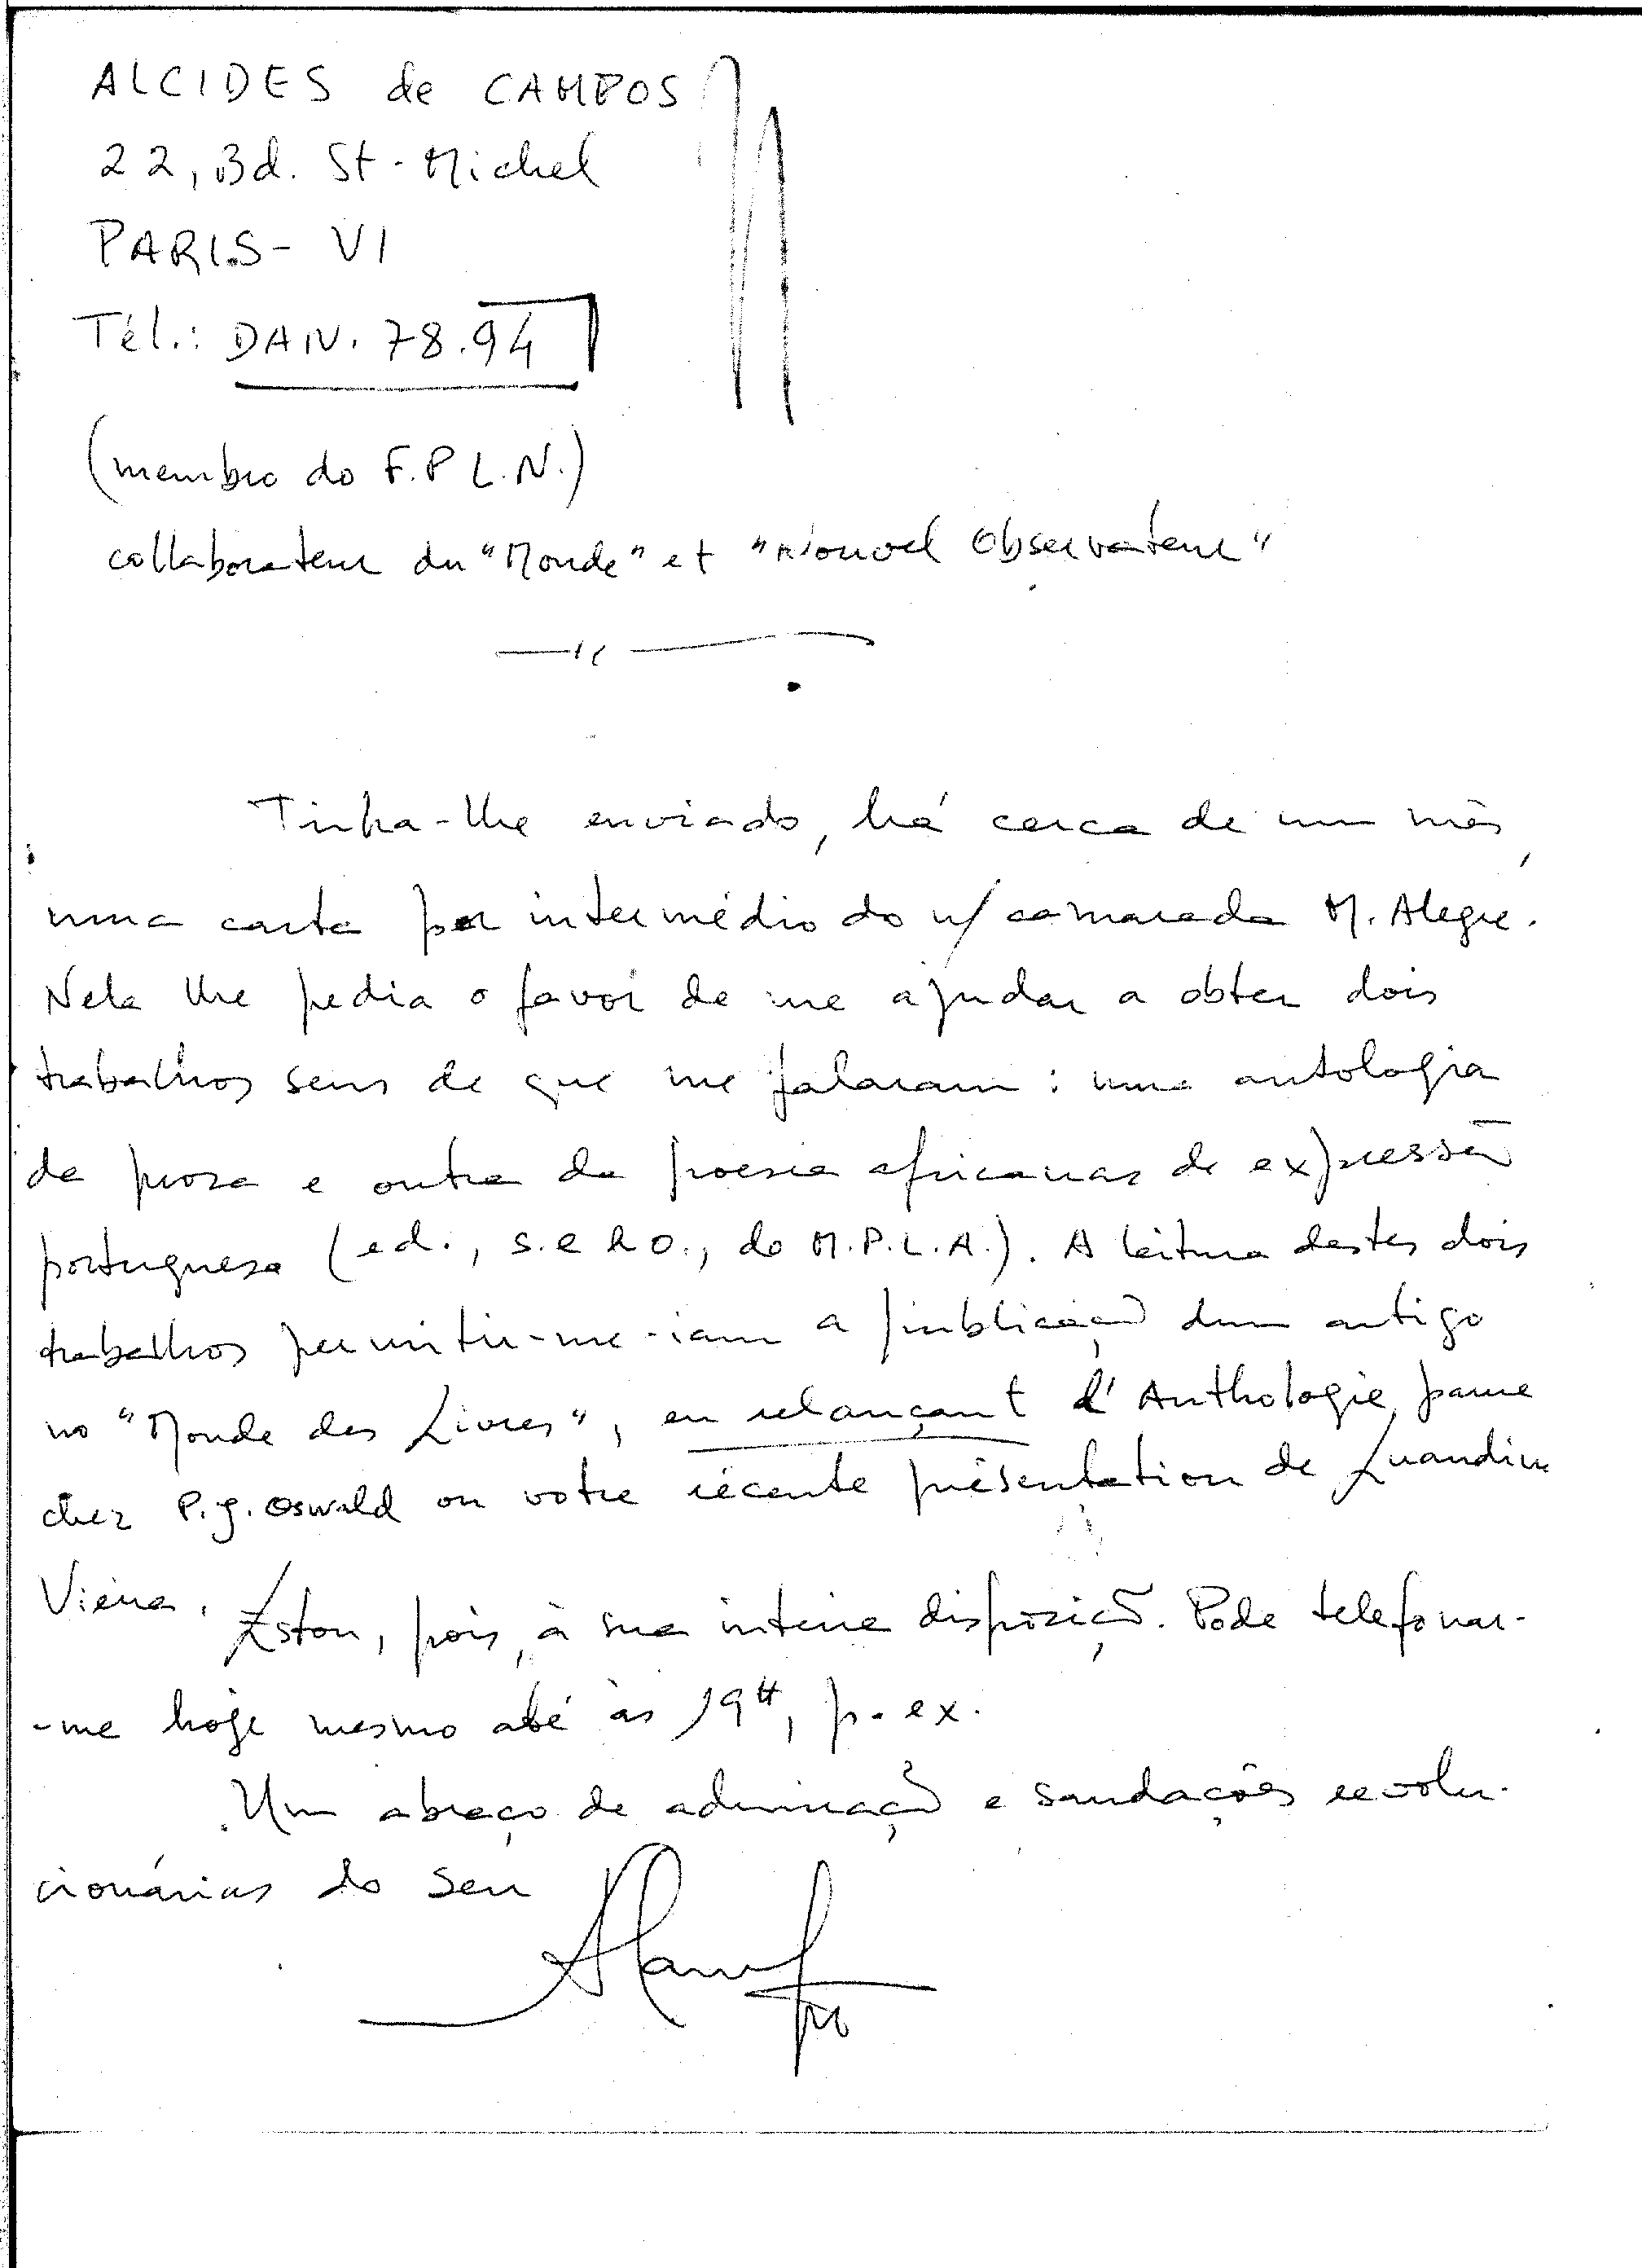 ALCIDES de CAMPOS
22, Bd. St-Michel
PARIS - VI
Tél.: DAN. 78.94
(membro do F.P.L.N.)
collaborateur du "Monde" et "Nouvel Observateur"
Tinha-lhe enviado, há cerca de um mês,
uma carta por intermédio do n/ camarada M. Alegre.
Nela lhe pedia o favor de me ajudar a obter dois
trabalhos seus de que me falaram: uma antologia
de prosa e outra de poesia africanas de expressão
portuguesa (ed., s.e h o., do M.P.L.A.). A leitura destes dois
trabalhos permitir-me-iam a publicação dum artigo
no "Monde des Livres", en relançant l'Anthologie parue
chez P.J. Oswald ou votre récente présentation de Luandino
Vieira. Estou, pois, à sua inteira disposição. Pode telefonar-
-me hoje mesmo até às 19H, p. ex.
Um abraço de admiração e saudações revolu-
cionárias do seu